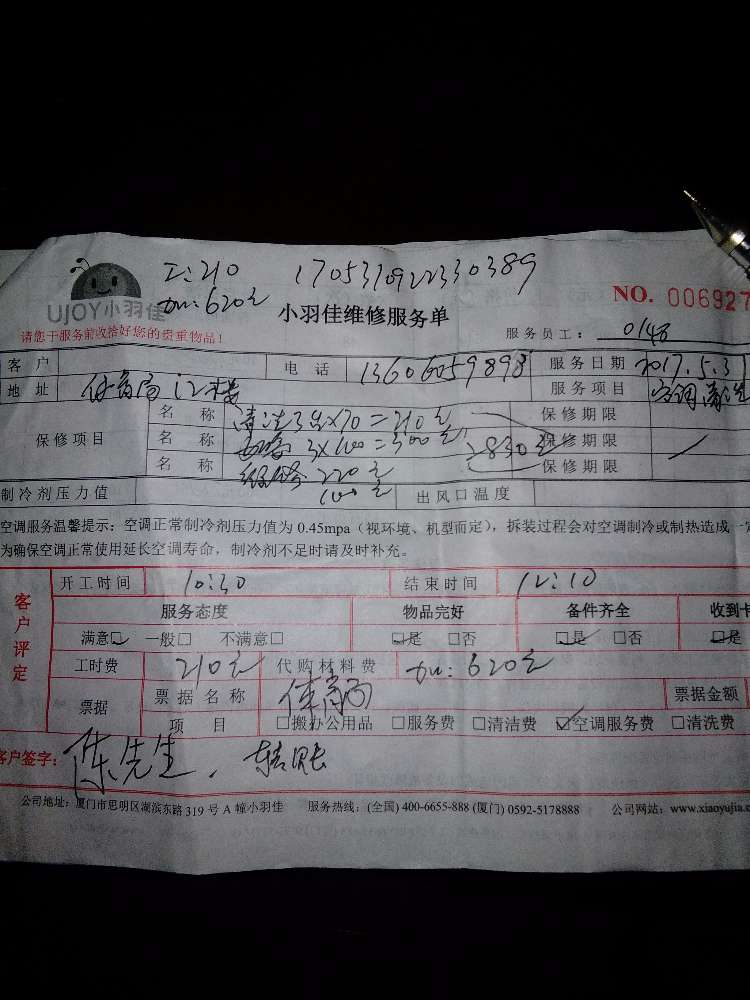 工:210 170531092330389
加:620元
UJOY小羽佳 小羽佳维修服务单 NO. 006927
请您于服务前收拾好您的贵重物品! 服务员工: 0148
客户 电话 13606059898 服务日期 2017.5.31
地址 体育局12楼 服务项目 空调清洗
保修项目
名称 清洗3台×70=210元 保修期限
名称 3×100=300元 830元 保修期限
名称 220元 保修期限
100元
制冷剂压力值 出风口温度
空调服务温馨提示:空调正常制冷剂压力值为 0.45mpa(视环境、机型而定),拆装过程会对空调制冷或制热造成一
为确保空调正常使用延长空调寿命,制冷剂不足时请及时补充。
客户评定
开工时间 10:30 结束时间 12:10
服务态度 物品完好 备件齐全 收到卡
满意□ 一般□ 不满意□ □是 □否 □是 □否 □是
工时费 210元 代购材料费 加:620元
票据 票据名称 体育局 票据金额
项目 □搬办公用品 □服务费 □清洁费 ☑空调服务费 □清洗费
客户签字: 陈先生. 转账
公司地址:厦门市思明区湖滨东路 319 号 A 幢小羽佳 服务热线:(全国) 400-6655-888 (厦门) 0592-5178888 公司网站:www.xiaoyujia.c